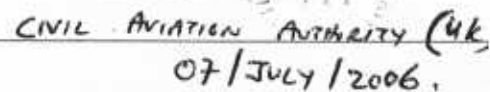 CIVIL AVIATION AUTHORITY (UK)
07/JULY/2006.